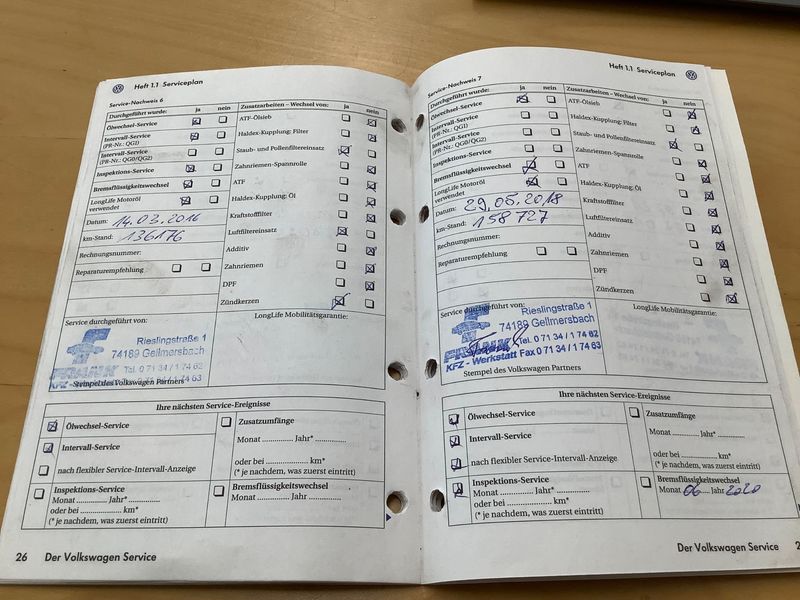 Heft 1.1 Serviceplan
Service-Nachweis 6
Durchgeführt wurde: ja nein
Ölwechsel-Service
Intervall-Service
(PR-Nr.: QG1)
Intervall-Service
(PR-Nr.: QG0/QG2)
Inspektions-Service
Bremsflüssigkeitswechsel
LongLife Motoröl
verwendet
Datum: 14.03.2016
km-Stand: 136176
Rechnungsnummer:
Reparaturempfehlung
Zusatzarbeiten – Wechsel von: ja nein
ATF-Ölsieb
Haldex-Kupplung: Filter
Staub- und Pollenfiltereinsatz
Zahnriemen-Spannrolle
ATF
Haldex-Kupplung: Öl
Kraftstofffilter
Luftfiltereinsatz
Additiv
Zahnriemen
DPF
Zündkerzen
Service durchgeführt von:
LongLife Mobilitätsgarantie:
Rieslingstraße 1
74189 Gellmersbach
Tel. 0 71 34 / 1 74 62
KFZ
Stempel des Volkswagen Partners
Ihre nächsten Service-Ereignisse
Ölwechsel-Service
Intervall-Service
nach flexibler Service-Intervall-Anzeige
Inspektions-Service
Monat ........... Jahr* ..............
oder bei ................ km*
(* je nachdem, was zuerst eintritt)
Zusatzumfänge
Monat ........... Jahr* ..............
oder bei ................ km*
(* je nachdem, was zuerst eintritt)
Bremsflüssigkeitswechsel
Monat ........... Jahr ..............
26 Der Volkswagen Service
Heft 1.1 Serviceplan
Service-Nachweis 7
Durchgeführt wurde: ja nein
Ölwechsel-Service
Intervall-Service
(PR-Nr.: QG1)
Intervall-Service
(PR-Nr.: QG0/QG2)
Inspektions-Service
Bremsflüssigkeitswechsel
LongLife Motoröl
verwendet
Datum: 29.05.2018
km-Stand: 158727
Rechnungsnummer:
Reparaturempfehlung
Zusatzarbeiten – Wechsel von: ja nein
ATF-Ölsieb
Haldex-Kupplung: Filter
Staub- und Pollenfiltereinsatz
Zahnriemen-Spannrolle
ATF
Haldex-Kupplung: Öl
Kraftstofffilter
Luftfiltereinsatz
Additiv
Zahnriemen
DPF
Zündkerzen
Service durchgeführt von:
LongLife Mobilitätsgarantie:
Rieslingstraße 1
74189 Gellmersbach
Tel. 0 71 34 / 1 74 62
KFZ - Werkstatt Fax 0 71 34 / 1 74 63
Stempel des Volkswagen Partners
Ihre nächsten Service-Ereignisse
Ölwechsel-Service
Intervall-Service
nach flexibler Service-Intervall-Anzeige
Inspektions-Service
Monat ........... Jahr* ..............
oder bei ................ km*
(* je nachdem, was zuerst eintritt)
Zusatzumfänge
Monat ........... Jahr* ..............
oder bei ................ km*
(* je nachdem, was zuerst eintritt)
Bremsflüssigkeitswechsel
Monat 06 Jahr 2020
Der Volkswagen Service